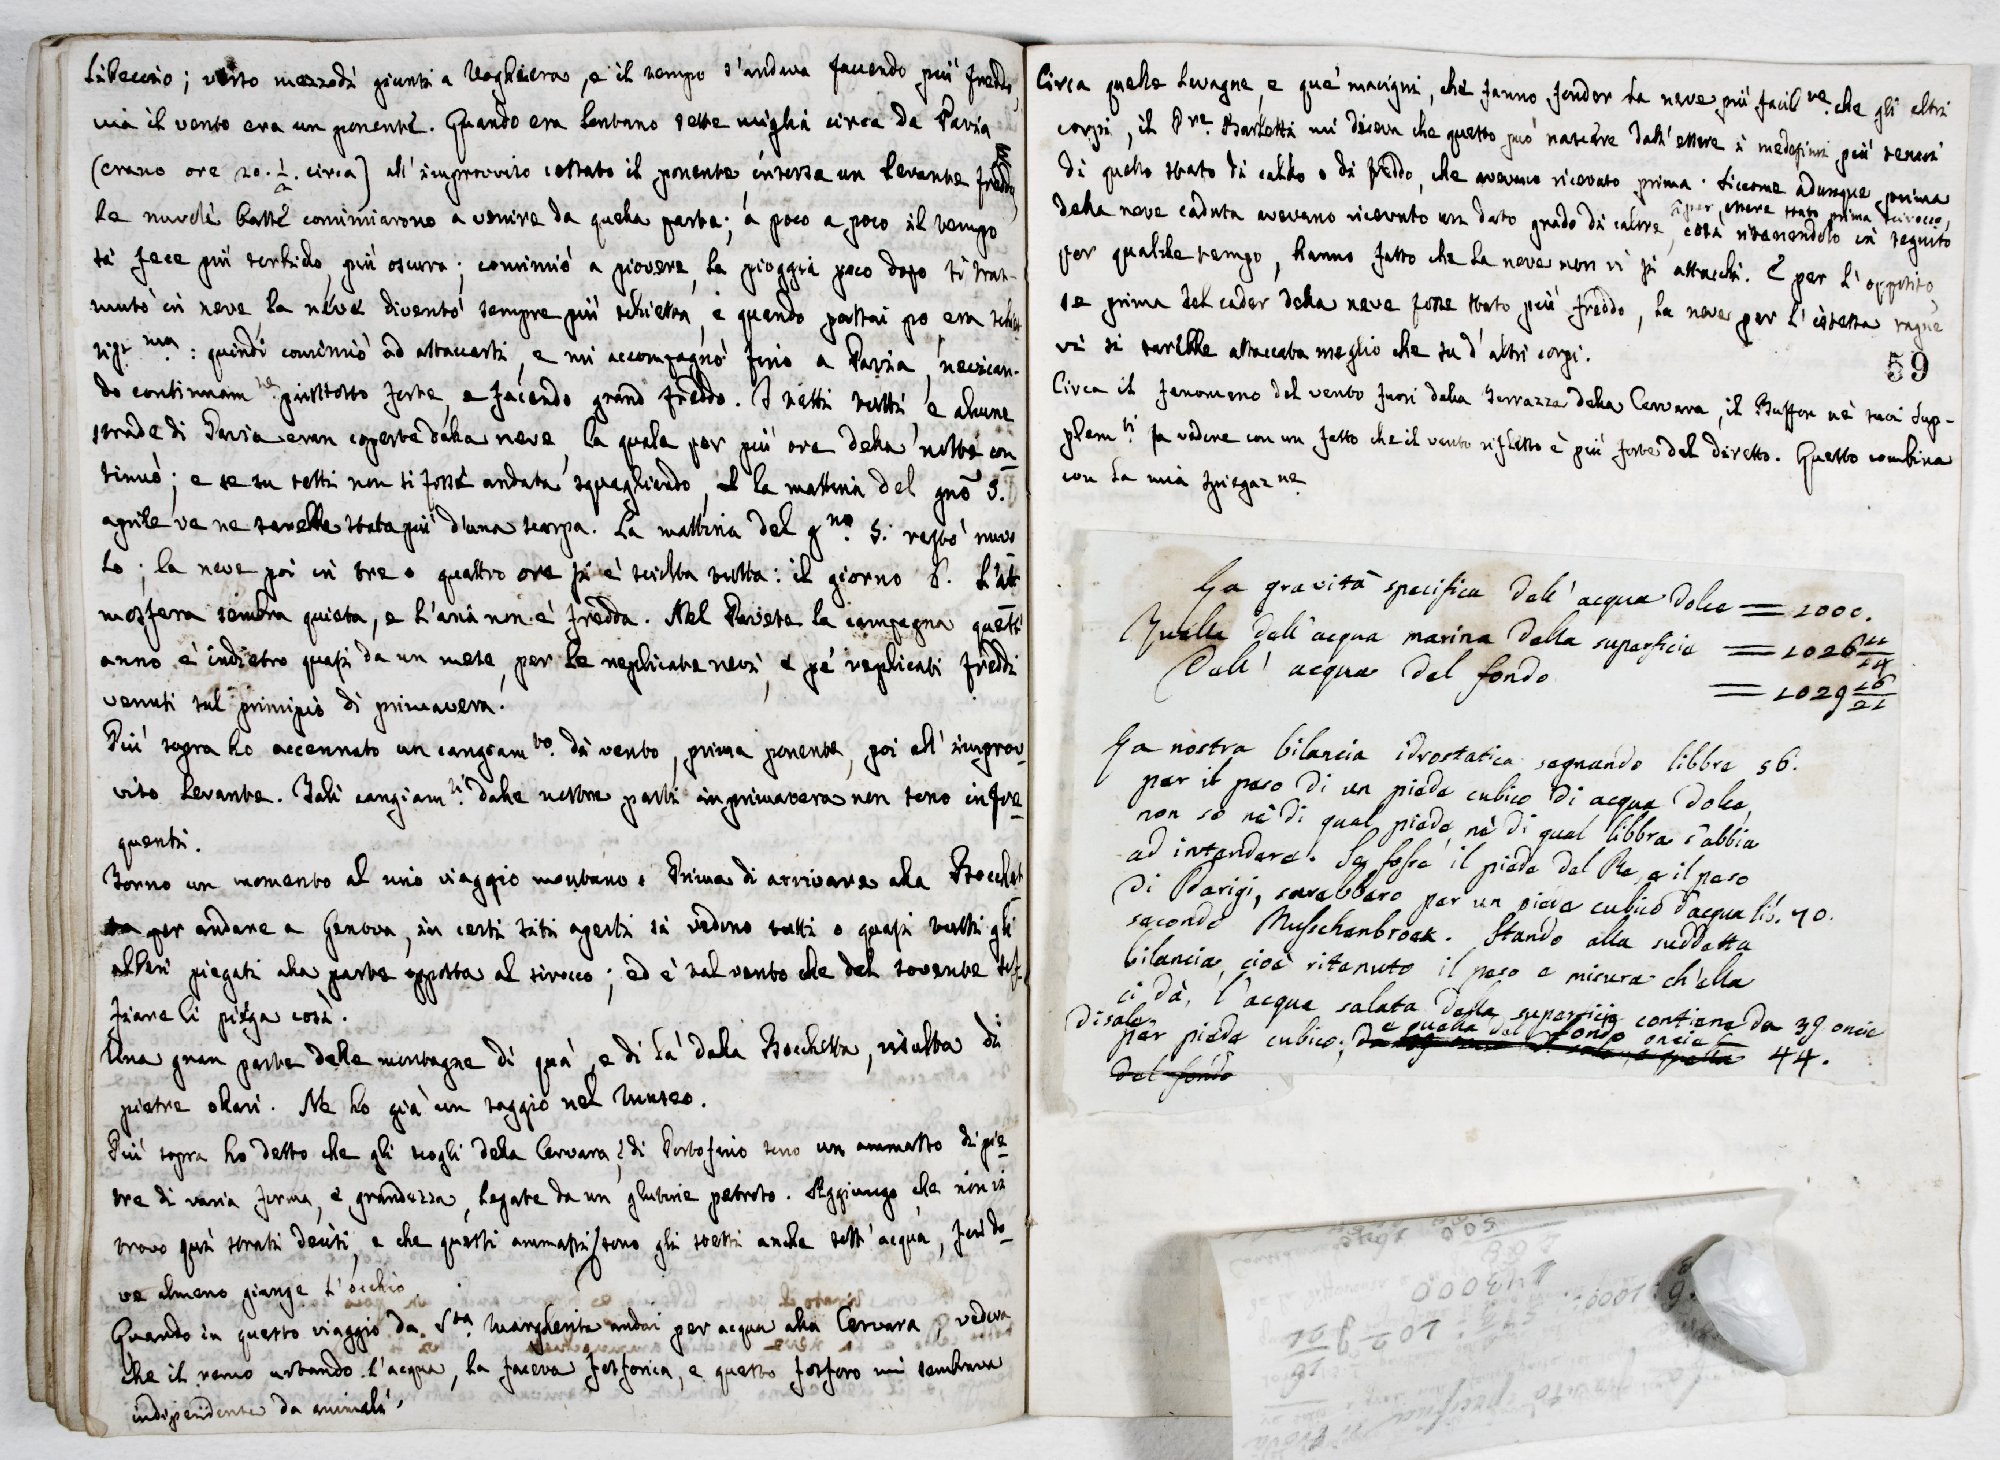 Libeccio; verso mezzodì giunti a Voghiera, e il tempo s'andava facendo più freddo,
ma il vento era un ponente. Quando era lontano sette miglia circa da Pavia
(erano ore 20. 1/2. circa) all'improvviso cessato il ponente insorse un levante freddo,
le nuvole basse cominciarono a venire da quella parte; a poco a poco il tempo
si fece più torbido, più oscuro; cominciò a piovere, la pioggia poco dopo si tras-
mutò in neve la neve diventò sempre più schietta, e quando passai po era schiet-
tiss.ma: quindi cominciò ad attaccarsi, e mi accompagnò fino a Pavia, nevican-
do continuam.te piuttosto forte, e facendo grand freddo. I tetti tutti e alcune
strade di Pavia eran coperte dalla neve, la quale per più ore della notte con-
tinuò; e se su tetti non si fosse andata squagliando, la mattina del gno 5.
aprile ve ne sarebbe stata più d'una scarpa. La mattina del gno. 5. restò nuvo
lo; la neve poi in tre o quattro ore si è sciolta tutta: il giorno 6. L'at-
mosfera sembra quieta, e l'aria non è fredda. Nel Pavese la campagna quest'
anno è indietro quasi da un mese, per le replicate nevi, e pe' replicati freddi
venuti sul principio di primavera.
Più sopra ho accennato un cangiam.to di vento, prima ponente, poi all'improv-
viso levante. Tali cangiam.ti dalle nostre parti in primavera non sono infre-
quenti.
Torno un momento al mio viaggio montano. Prima di arrivare alla Bocchet-
ta per andare a Genova, in certi siti aperti si vedono tutti o quasi tutti gli
alberi piegati alla parte opposta al sirocco; ed è tal vento che del sovente sof-
fiare li piega così.
Una gran parte delle montagne di quà, e di là dalla Bocchetta, risulta di
pietre ollari. Ne ho già un saggio nel Museo.
Più sopra ho detto che gli scogli della Cervara, e di Portofino sono un ammasso di pie-
tre di varia forma, e grandezza, legate da un glutine petroso. Aggiungo che non vi
trovo quì strati decisi, e che questi ammassi sono gli stessi anche sott'acqua, fin do-
ve almeno giunge l'occhio.
Quando in questo viaggio da Sta. Margherita andai per acqua alla Cervara, vedeva
che il remo urtando l'acqua, la faceva fosforica, e questo fosforo mi sembrava
indipendente da animali.
Circa quelle lavagne, e que' macigni, che fanno fonder la neve più facil.te che gli altri
corpi, il Pre. Barletti mi diceva che questo può nascere dall'essere i medesimi più tenaci
di quello stato di caldo o di freddo, che avevano ricevuto prima. Siccome adunque prima
per essere stato prima scirocco,
della neve caduta avevano ricevuto un dato grado di calore, così ritenendolo in seguito
per qualche tempo, hanno fatto che la neve non vi si attacchi. E per l'opposito
se prima del cader della neve fosse stato più freddo, la neve per l'istessa ragne
vi si sarebbe attaccata meglio che su d'altri corpi.
59
Circa il fenomeno del vento fuori della Terrazza della Cervara, il Buffon nè suoi sup-
plem.ti fa vedere con un fatto che il vento riflesso è più forte del diretto. Questo combina
con la mia spiegaz.ne
La gravità specifica dell'acqua dolce = 1000.
Quella dell'acqua marina della superficie = 1026
Dell'acqua del fondo = 1029 16/21
La nostra bilancia idrostatica segnando libbre 56.
per il peso di un piede cubico di acqua dolce,
non so nè di qual piede, nè di qual libbra s'abbia
ad intendere. Se fosse il piede del Re, e il peso
di Parigi, sarebbero per un piede cubico d'acqua lib. 70.
secondo Musschenbroek. Stando alla suddetta
bilancia, cioè ritenuto il peso e misura ch'ella
ci dà, l'acqua salata della superficie contiene da 39 oncie
di sale
per piede cubico; e quella del fondo oncie 44.
del fondo